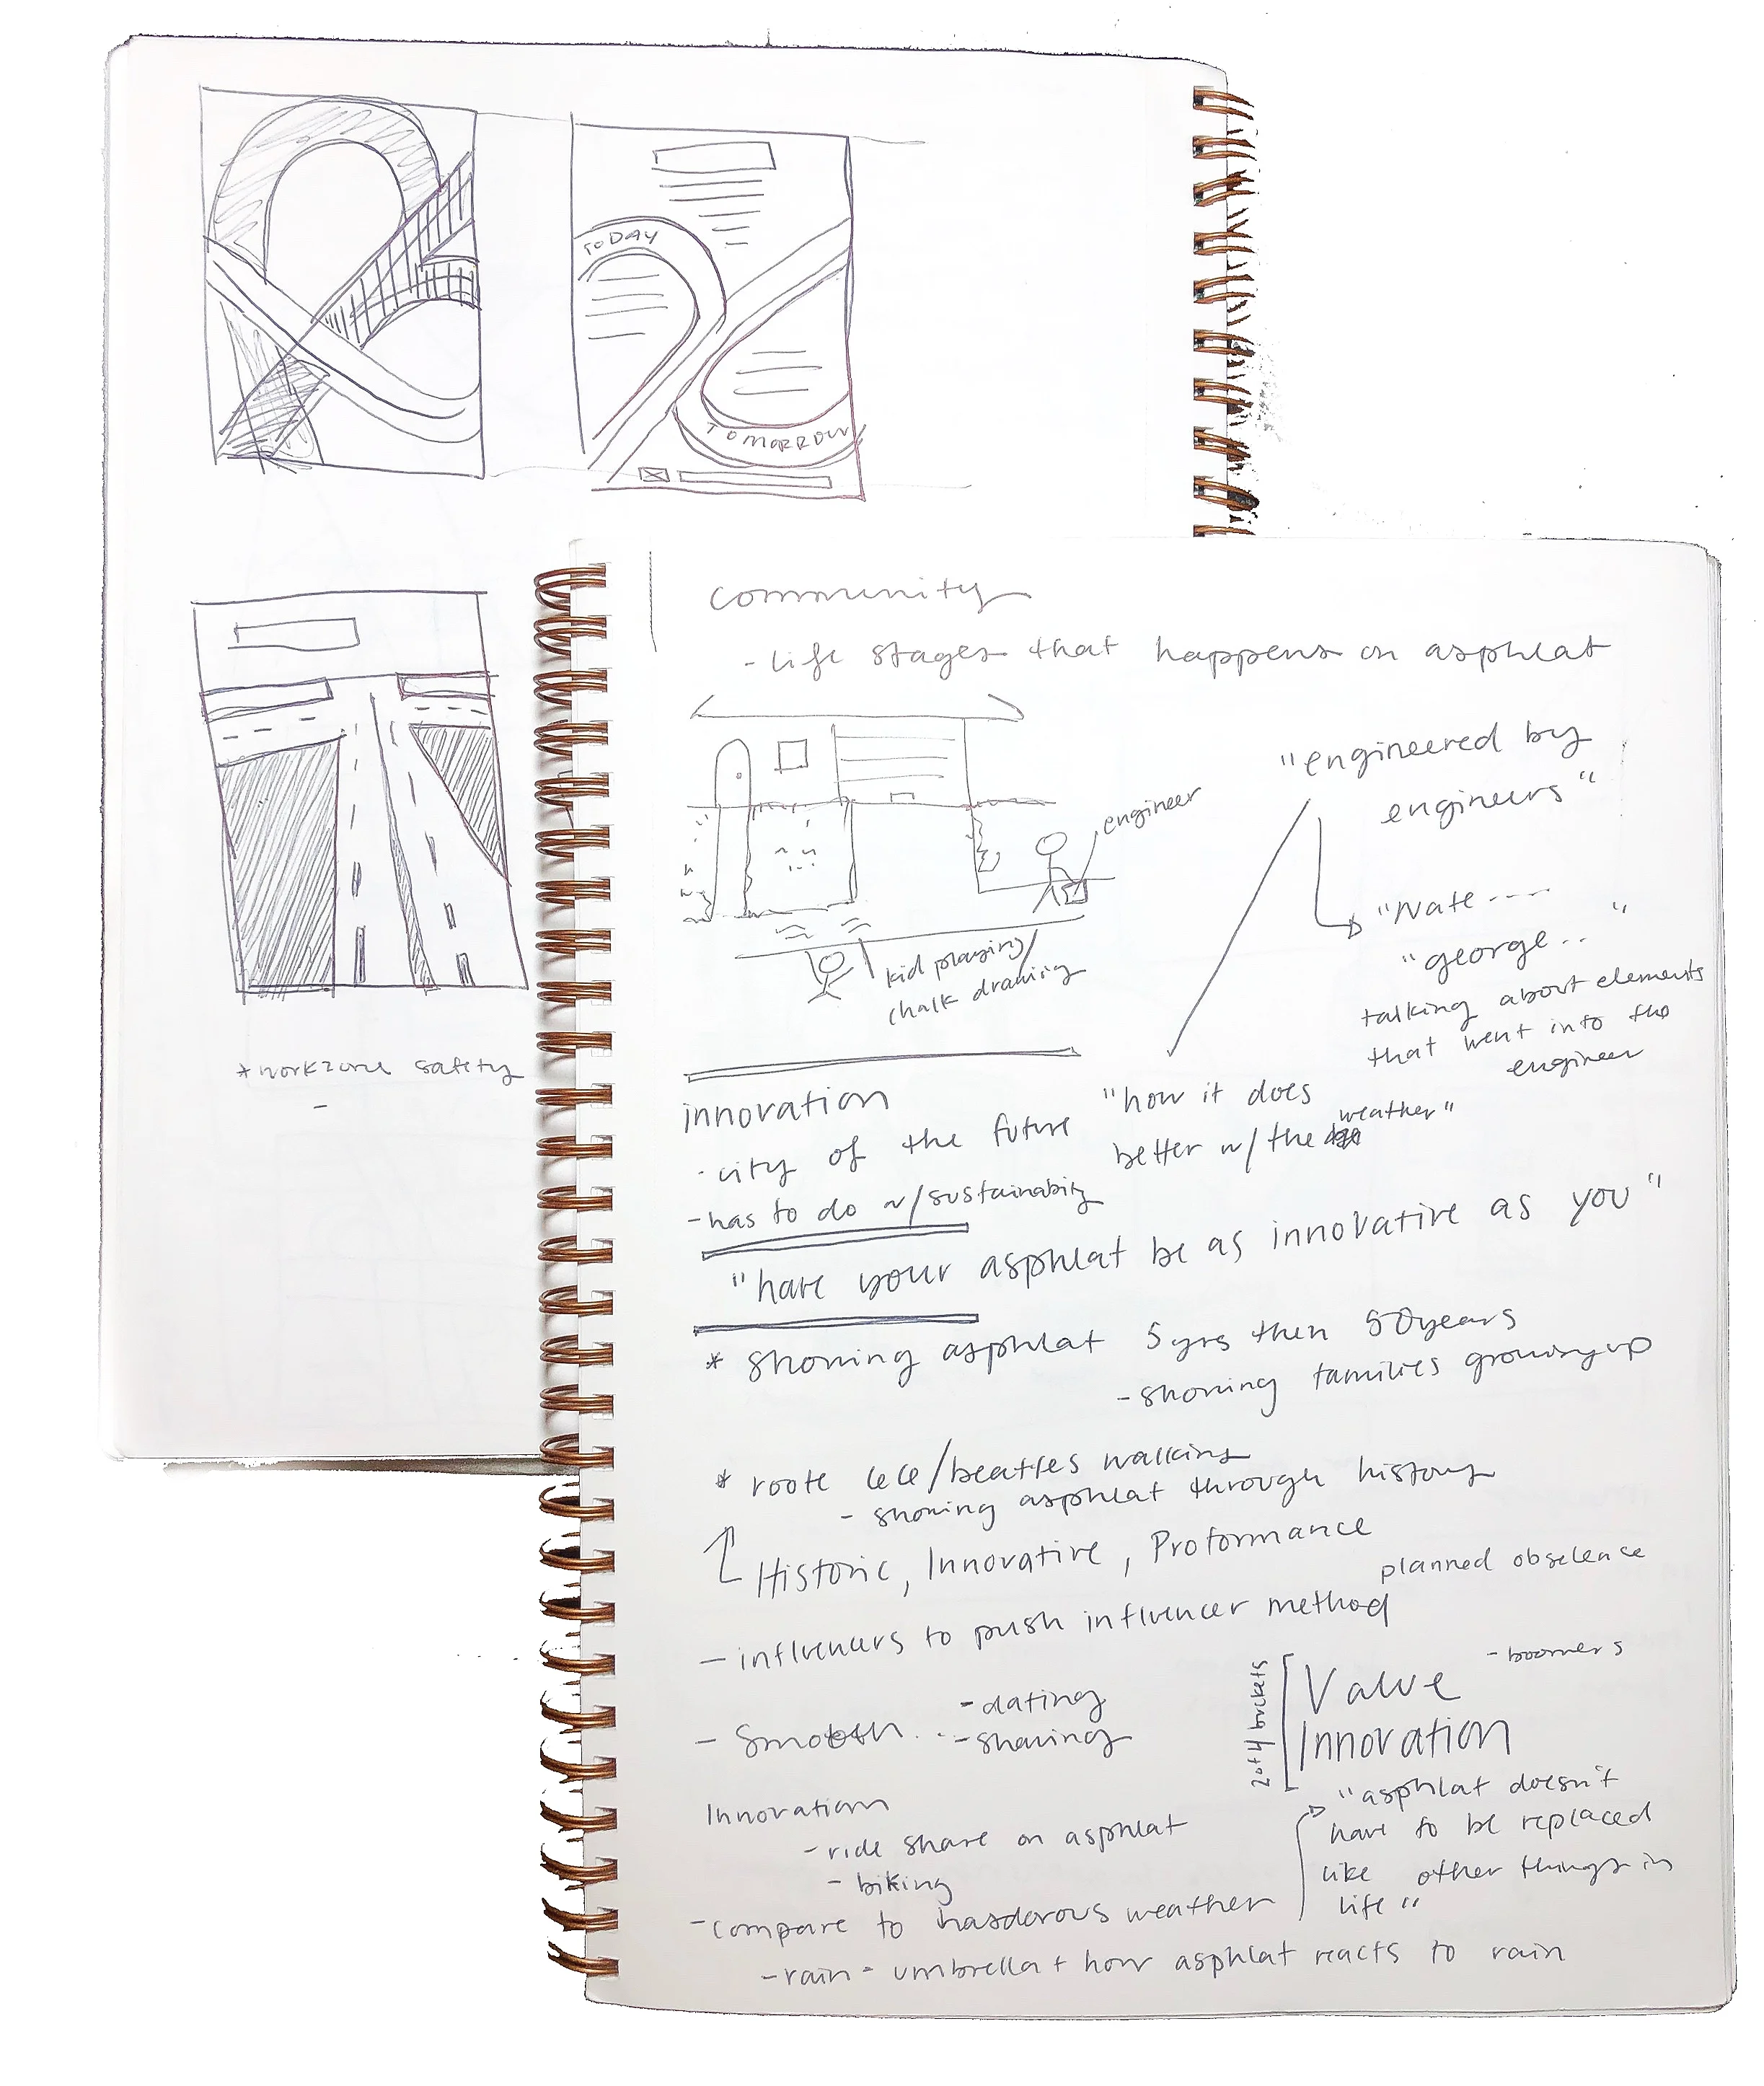 TODAY
TOMORROW
*workzone safety
-
community
- life stages that happens on asphlat
"engineered by
engineers"
engineer
kid playing/
chalk drawing
"Nate ----
"george .. "
talking about elements
that went into the
engineer
innovation
- city of the future
- has to do w/sustainability
"how it does
better w/the weather"
"have your asphlat be as innovative as you"
* showing asphlat 5yrs then 50years
- showing families growing up
* roote 66/beatles walking
- showing asphlat through history
Historic, Innovative, Proformance
planned obselence
- influencers to push influencer method
- Smooth ... - dating
- shaving
2 of 4 buckets
Value - boomers
Innovation
"asphlat doesn't
have to be replaced
like other things in
life"
Innovation
- ride share on asphlat
- biking
- compare to hasderous weather
- rain = umbrella + how asphlat reacts to rain